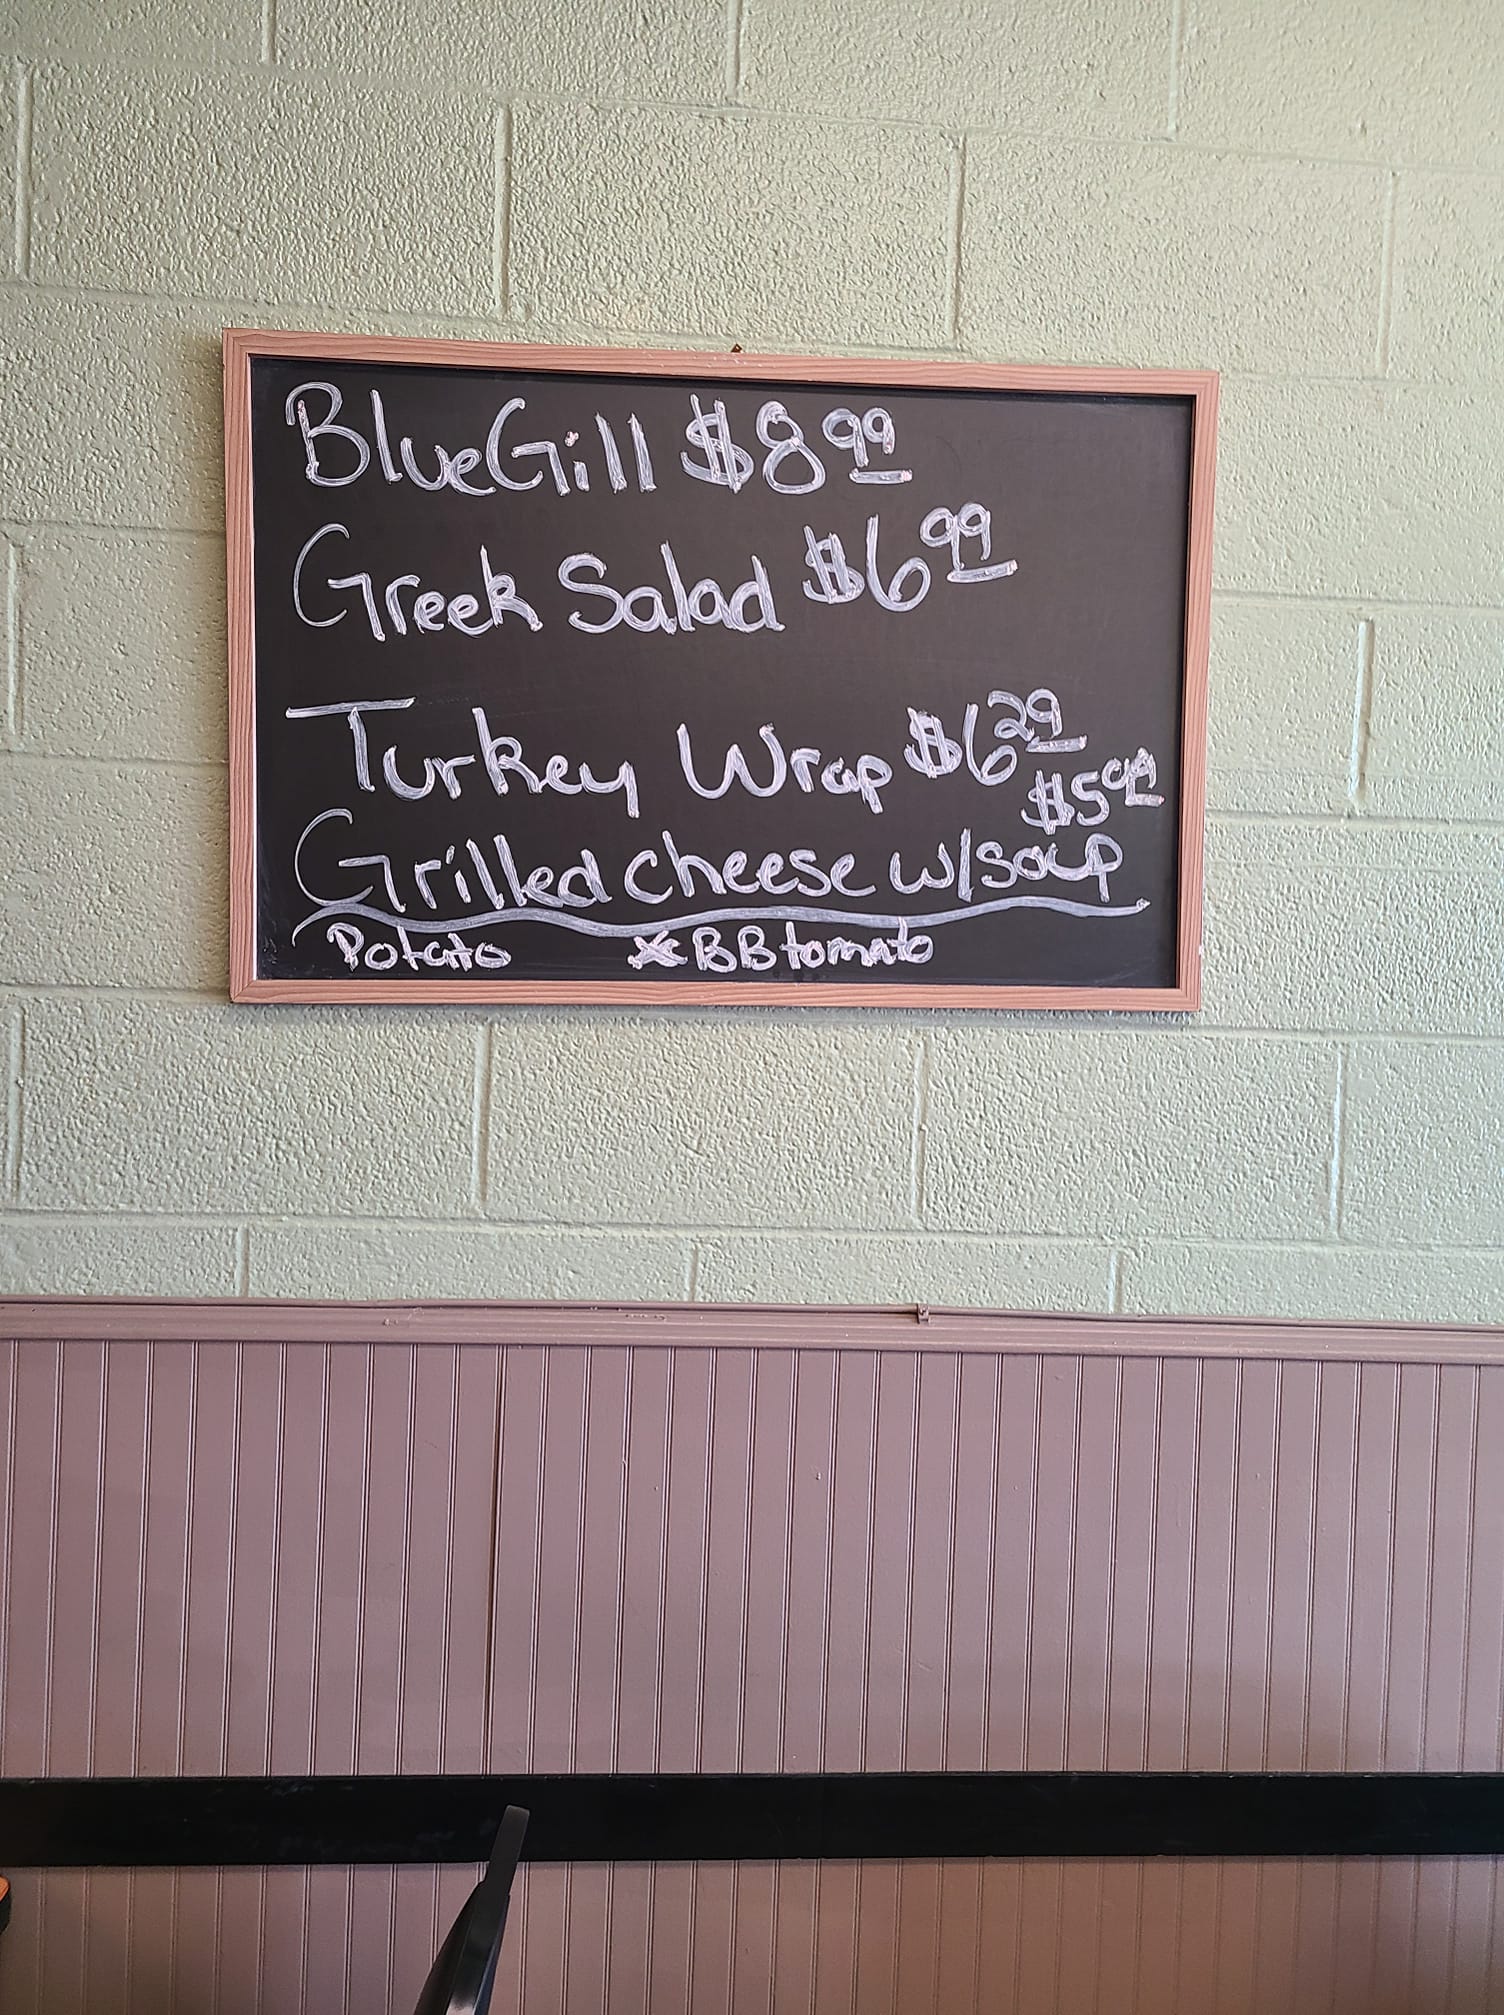 BlueGill $8.99
Greek Salad $6.99
Turkey Wrap $6.29
$5.99
Grilled cheese w/soup
Potato *BB tomato